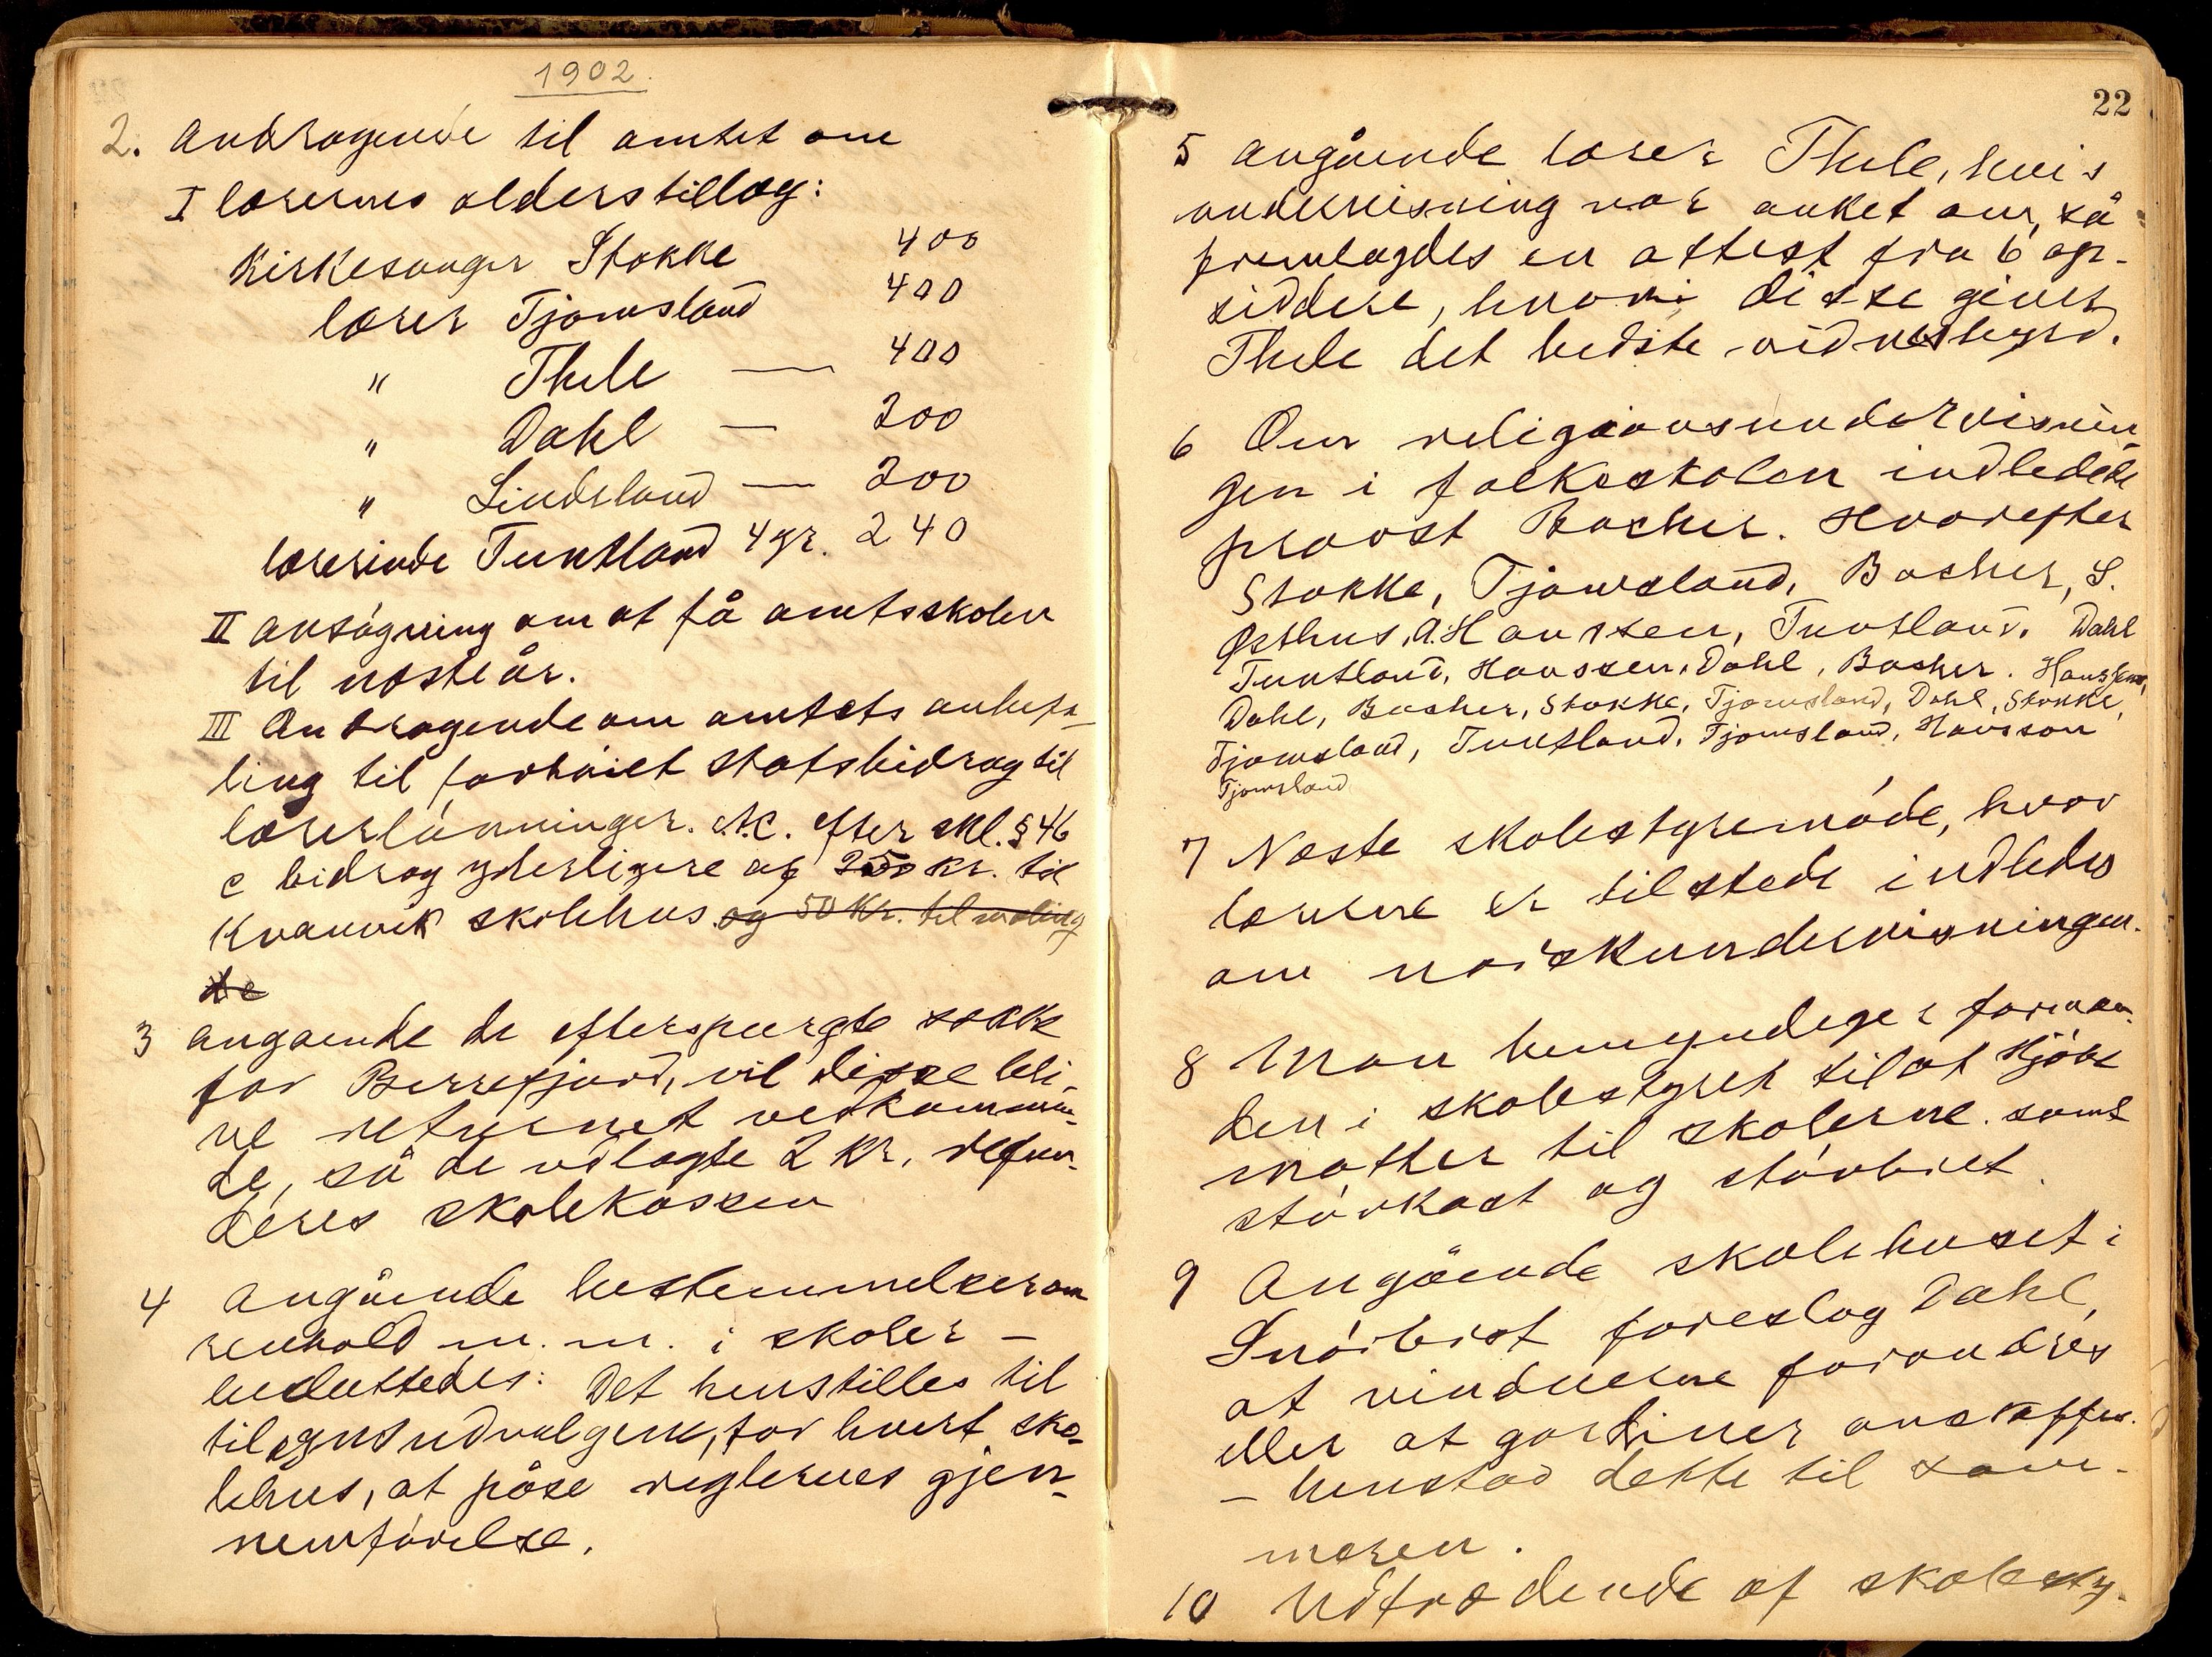 1902.
2. Andragende til amtet om
I lærernes alderstillæg:
Kirkesanger Stokke 400
lærer Tjomsland 400
" Thule — 400
" Dahl — 200
" Lindsland — 200
lærerinde Tuntland 4gr. 240
II ansøgning om at få amtsskolen
til næste år.
III Andragende om amtets anbefa-
ling til forhøiet statsbidrag til
lærerlønninger. etc. efter skl. § 46
c bidrag yderligere af 250 kr. til
Kvanvik skolehus og 50 kr. til maling
de
3 angaaende de efterspurgte sække
for Berrefjord, vil disse bli-
ve returnet vedkommen-
de, så de udlagte 2 kr. refun-
deres skolekassen
4 Angående bestemmelser om
renhold m. m. i skoler —
besluttedes: Det henstilles til
tilsynsudvalgene, for hvert sko-
lehus, at påse reglernes gjen-
nemførelse.
22
5 angående lærer Thule, hvis
undervisning var anket om, så
fremlagdes en attest fra 6 op-
siddere, hvori disse giver
Thule det bedste vidnesbyrd.
6 Om religionsundervisnin
gen i folkeskolen indledede
provst Bacher. Hvorefter
Stokke, Tjomsland, Bacher, S.
Østhus, A. Hanssen, Tuntland, Dahl
Tuntland, Hanssen, Dahl, Bacher. Hanssen,
Dahl, Bacher, Stokke, Tjomsland, Dahl, Stokke,
Tjomsland, Tuntland, Tjomsland, Hansson
Tjomsland
7 Næste skolestyremøde, hvor
lærerne er tilstede indledes
om norskundervisningen.
8 Man bemyndiger forman-
den i skolestyret til at kjøbe
matter til skolerne. samt
støvkost og støvbret.
9 Angående skolehuset i
Snørbist foreslog Dahl,
at vinduerne forandres
eller at gardiner anskaffes.
— henstod dette til som-
meren.
10 Udtrædende af skolesty-